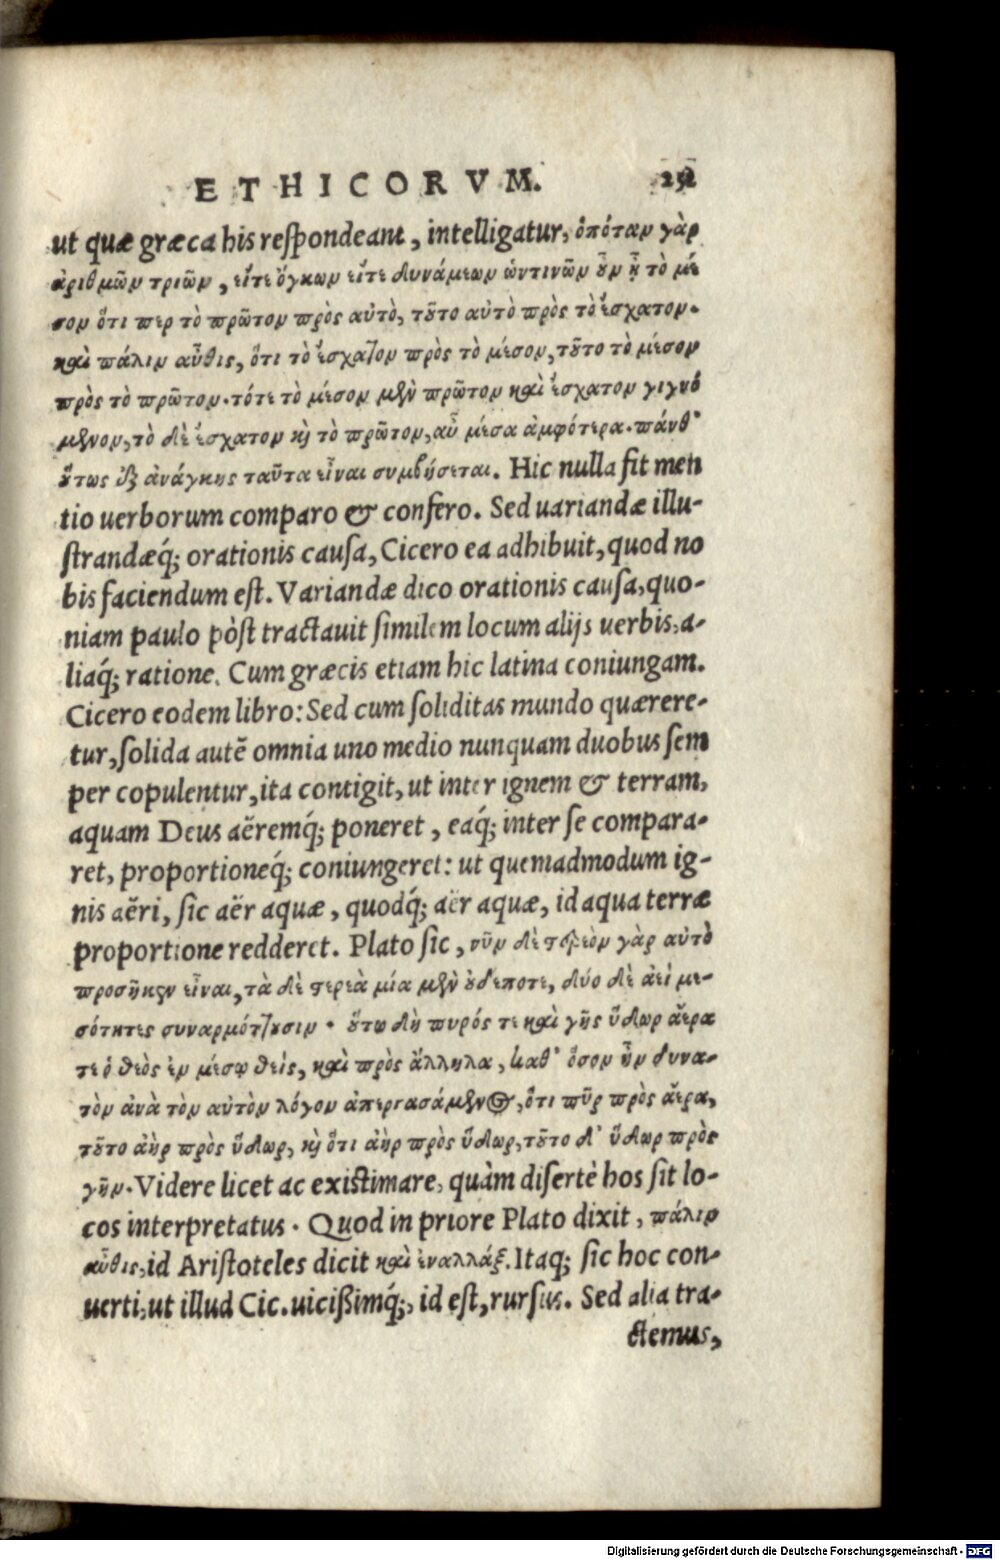 ETHICORVM.
ut quæ græca his reſpondeant, intelligatur, ὁπόταν γὰρ
ἀριθμῶν τριῶν, εἴτε ὄγκων εἴτε δυνάμεων ὡντινῶν οὖν ᾖ τὸ μέ
σον ὅτι περ τὸ πρῶτον πρὸς αὐτὸ, τοῦτο αὐτὸ πρὸς τὸ ἔσχατον.
καὶ πάλιν αὖθις, ὅτι τὸ ἔσχατον πρὸς τὸ μέσον, τοῦτο τὸ μέσον
πρὸς τὸ πρῶτον. τότε τὸ μέσον μὲν πρῶτον καὶ ἔσχατον γιγνό
μενον, τὸ δὲ ἔσχατον καὶ τὸ πρῶτον, αὖ μέσα ἀμφότερα. πάνθ᾽
οὕτως ἐξ ἀνάγκης ταῦτα εἶναι συμβήσεται. Hic nulla fit men
tio uerborum comparo & confero. Sed uariandæ illu-
ſtrandæq́; orationis cauſa, Cicero ea adhibuit, quod no
bis faciendum eſt. Variandæ dico orationis cauſa, quo-
niam paulo pòſt tractauit ſimilem locum alijs uerbis, a-
liaq́; ratione. Cum græcis etiam hic latina coniungam.
Cicero eodem libro: Sed cum ſoliditas mundo quærere-
tur, ſolida autē omnia uno medio nunquam duobus ſem
per copulentur, ita contigit, ut inter ignem & terram,
aquam Deus aëremq́; poneret, eaq́; inter ſe compara-
ret, proportioneq́; coniungeret: ut quemadmodum ig-
nis aëri, ſic aër aquæ, quodq́; aër aquæ, id aqua terræ
proportione redderet. Plato ſic, νῦν δὲ στερεὸν γὰρ αὐτὸ
προσῆκεν εἶναι, τὰ δὲ στερεὰ μία μὲν οὐδέποτε, δύο δὲ ἀεὶ με-
σότητες συναρμόττουσιν. οὕτω δὴ πυρός τε καὶ γῆς ὕδωρ ἀέρα
τε ὁ θεὸς ἐν μέσῳ θεὶς, καὶ πρὸς ἄλληλα, καθ᾽ ὅσον ἦν δυνα-
τὸν ἀνὰ τὸν αὐτὸν λόγον ἀπεργασάμενος, ὅτι πῦρ πρὸς ἀέρα,
τοῦτο ἀὴρ πρὸς ὕδωρ, καὶ ὅτι ἀὴρ πρὸς ὕδωρ, τοῦτο δ᾽ ὕδωρ πρὸς
γῆν. Videre licet ac existimare, quàm diſertè hos ſit lo-
cos interpretatus. Quod in priore Plato dixit, πάλιν
αὖθις, id Ariſtoteles dicit καὶ ἐναλλάξ. Itaq; ſic hoc con-
uerti, ut illud Cic. uicißimq́;, id eſt, rurſus. Sed alia tra-
ctemus,
Digitalisierung gefördert durch die Deutsche Forschungsgemeinschaft - DFG